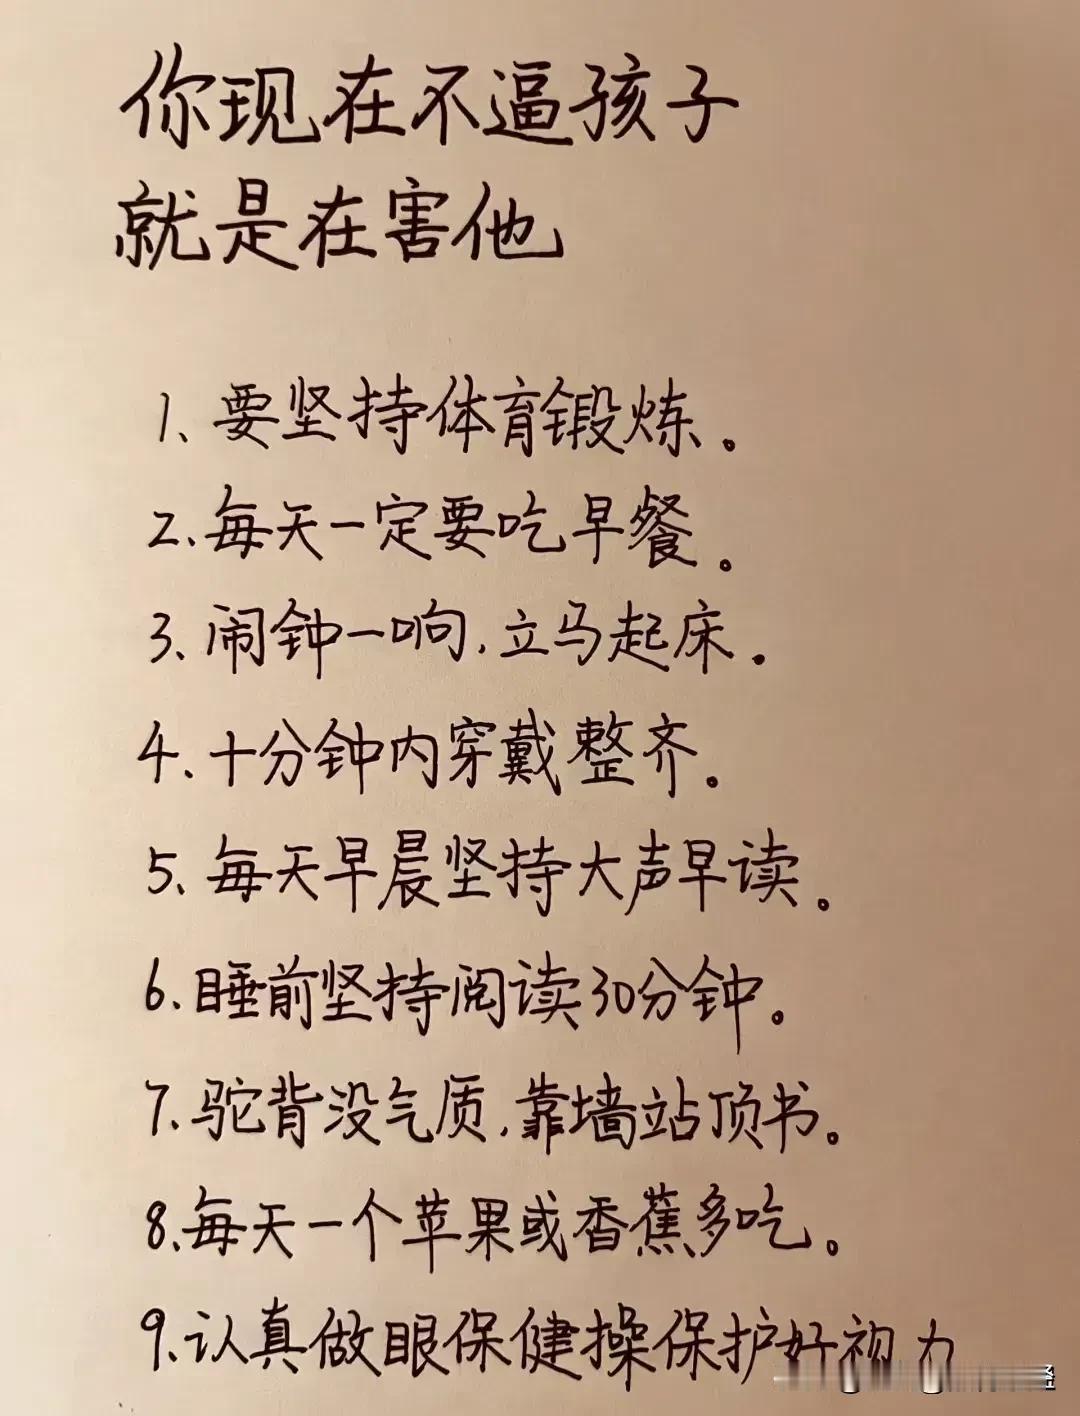 你现在不逼孩子
就是在害他
1、要坚持体育锻炼。
2、每天一定要吃早餐。
3、闹钟一响,立马起床。
4、十分钟内穿戴整齐。
5、每天早晨坚持大声早读。
6、睡前坚持阅读30分钟。
7、驼背没气质,靠墙站顶书。
8、每天一个苹果或香蕉多吃。
9、认真做眼保健操保护好视力